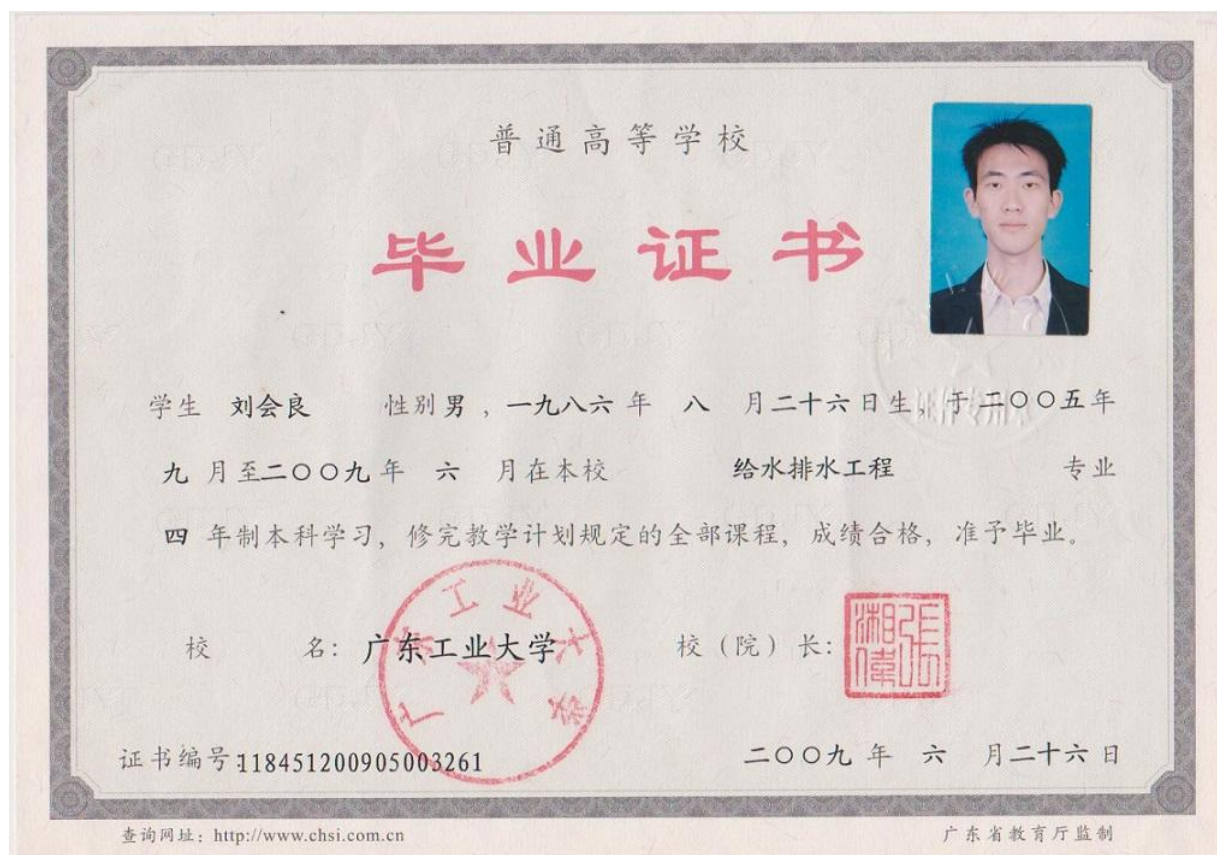 普通高等学校
毕业证书
学生 刘会良 性别男，一九八六年 八 月二十六日生，于二〇〇五年
九 月至二〇〇九年 六 月在本校 给水排水工程 专业
四 年制本科学习，修完教学计划规定的全部课程，成绩合格，准予毕业。
校 名：广东工业大学 校（院）长：
广东工业大学
张湘伟
证书编号：118451200905003261 二〇〇九年 六 月二十六日
查询网址：http://www.chsi.com.cn 广东省教育厅监制